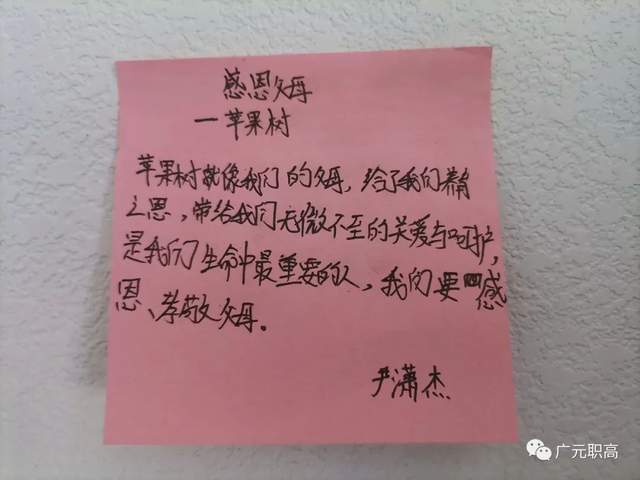 感恩父母
一苹果树
苹果树就像我们的父母，给了我们养育
之恩，带给我们无微不至的关爱与呵护，
是我们生命中最重要的人，我们要感
恩、孝敬父母。
尹潇杰
广元职高